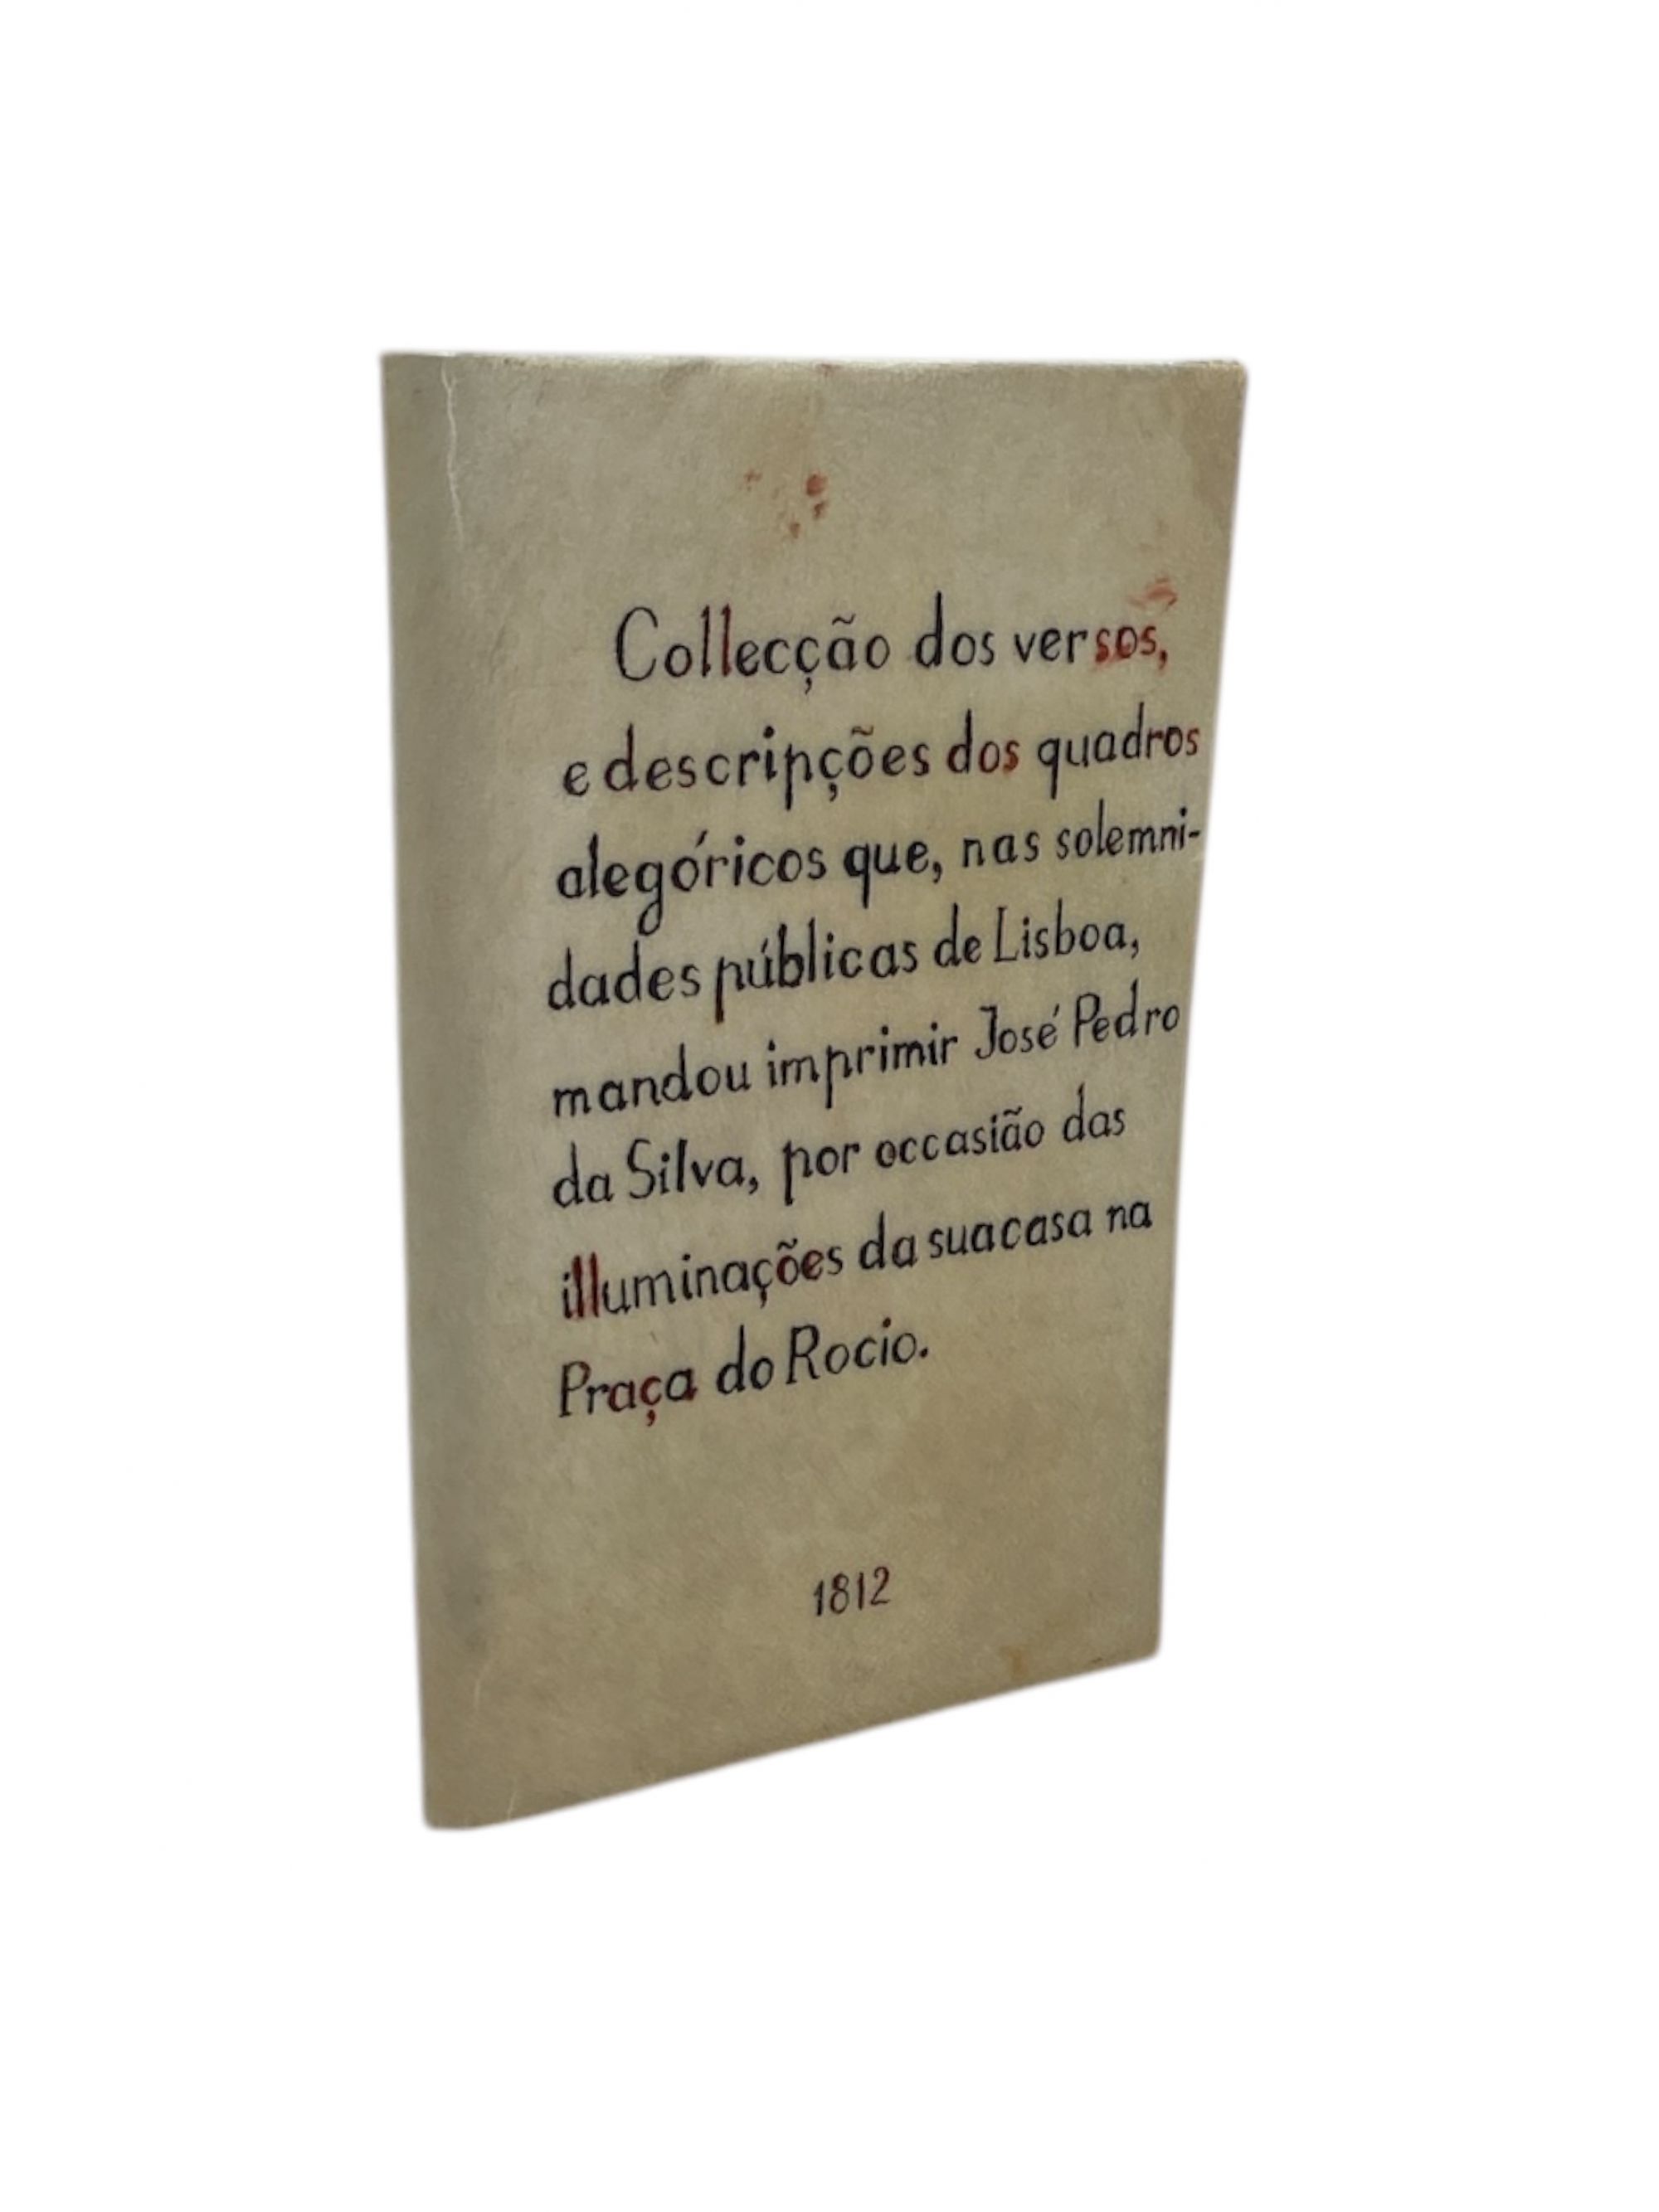 Collecção dos versos,
e descripções dos quadros
alegóricos que, nas solemni-
dades públicas de Lisboa,
mandou imprimir José Pedro
da Silva, por occasião das
illuminações da sua casa na
Praça do Rocio.
1812